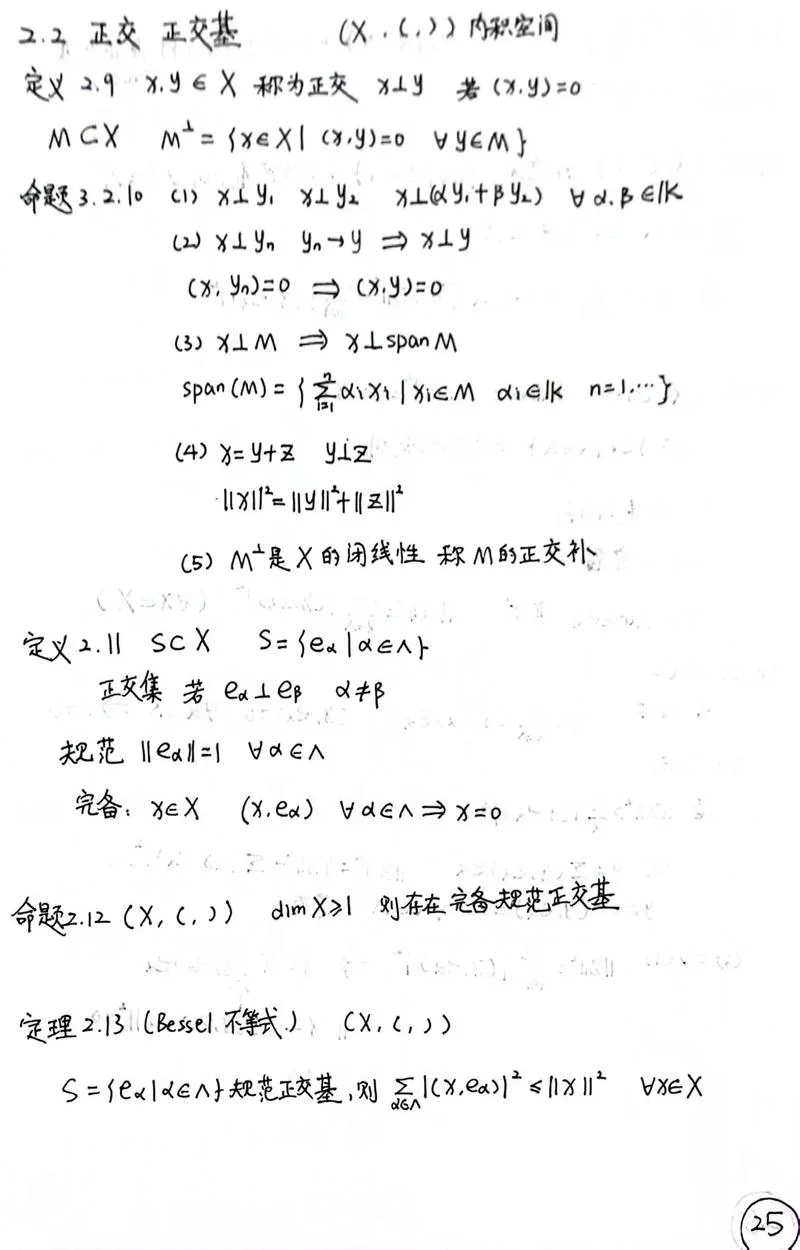 2.2 正交 正交基 (X,(,)) 内积空间
定义 2.9 x,y∈X 称为正交 x⊥y 若 (x,y)=0
M⊂X M^⊥={x∈X| (x,y)=0 ∀y∈M}
命题3.2.10 (1) x⊥y₁ x⊥y₂ x⊥(αy₁+βy₂) ∀α,β∈𝕂
(2) x⊥yₙ yₙ→y ⇒ x⊥y
(x,yₙ)=0 ⇒ (x,y)=0
(3) x⊥M ⇒ x⊥span M
span(M)={∑_{i=1}^{n} αᵢxᵢ | xᵢ∈M αᵢ∈𝕂 n=1,⋯},
(4) x=y+z y⊥z
||x||²=||y||²+||z||²
(5) M^⊥是X的闭线性 称M的正交补
定义2.11 S⊂X S={e_α|α∈Λ}
正交集 若 e_α⊥e_β α≠β
规范 ||e_α||=1 ∀α∈Λ
完备: x∈X (x,e_α) ∀α∈Λ⇒x=0
命题2.12 (X,(,)) dim X≥1 则存在完备规范正交基
定理2.13 (Bessel 不等式) (X,(,))
S={e_α|α∈Λ}规范正交基,则 ∑_{α∈Λ}|(x,e_α)|²≤||x||² ∀x∈X
25